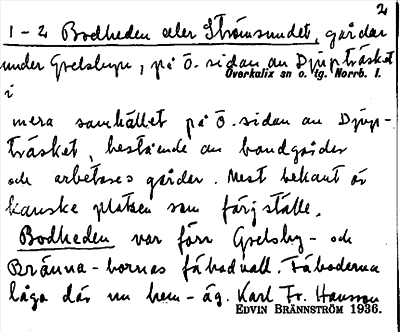 2
1-2 Bodheden eler Strömsundet, gårdar
under Grelsbyn, på ö. sidan av Djupträsket
Överkalix sn o. tg. Norrb. l.
i
mera samhället på ö. sidan av Djup-
träsket, bestående av bondgårdar
och arbetares gårdar. Mest bekant är
kanske platsen som färjställe.
Bodheden var förr Grelsby- och
Bränna-bornas fäbodvall. Fäboderna
låga där nu hem-äg. Karl Fr. Hansson
EDVIN BRÄNNSTRÖM 1936.